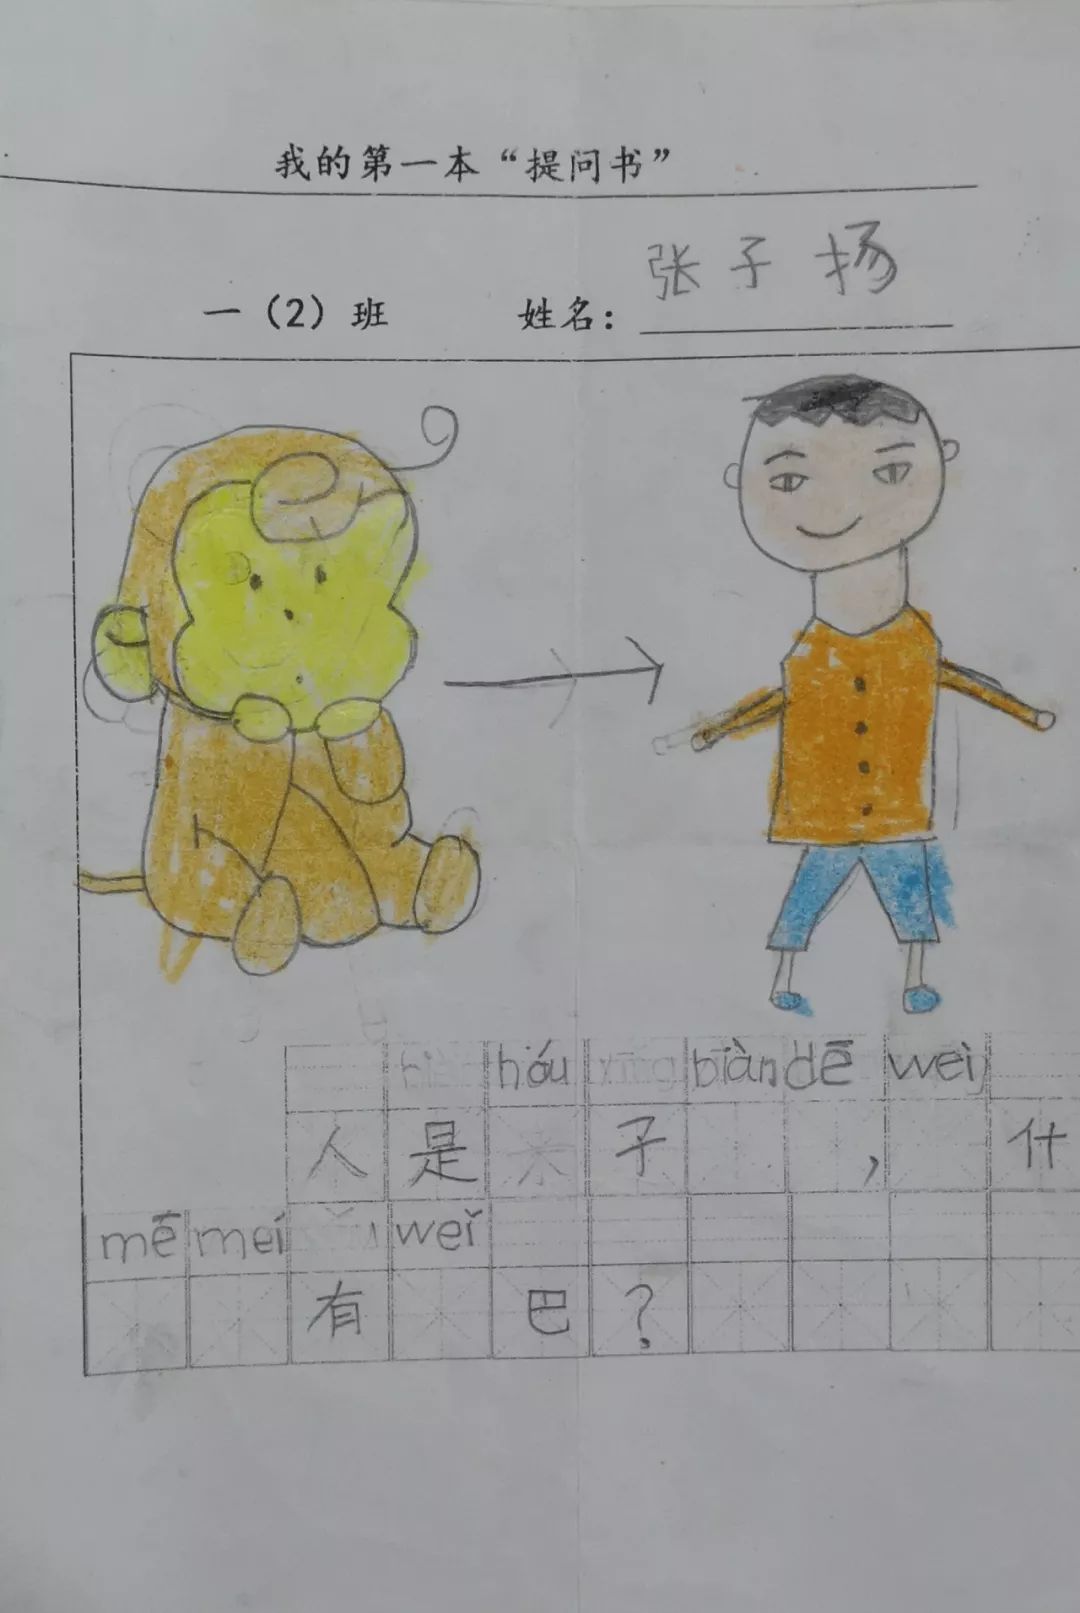 我的第一本“提问书”
一（2）班 姓名：张子扬
háu biàn dē wèi
人是 子 ， 什
mē meí weǐ
有 巴？